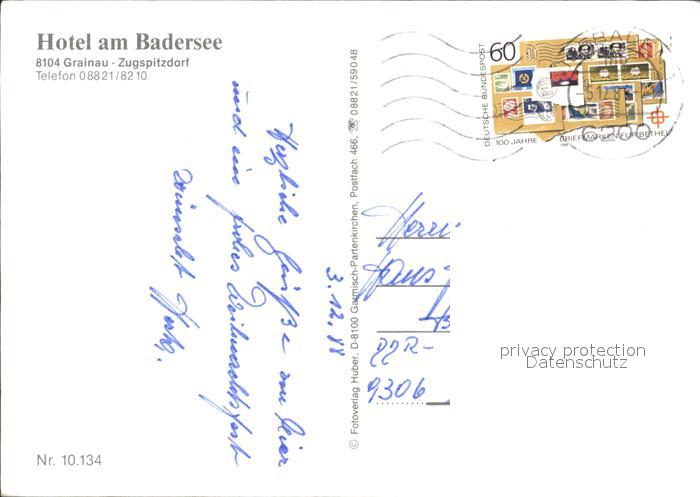 Hotel am Badersee
8104 Grainau · Zugspitzdorf
Telefon 08821/8210
3.12.88
Herzliche Grüße von hier
und ein frohes Weihnachtsfest
wünscht
© Fotoverlag Huber, D-8100 Garmisch-Partenkirchen, Postfach 466, ☎ 08821/59048
60
DEUTSCHE BUNDESPOST
100 JAHRE BRIEFMARKEN FÜR BETHEL
Herrn
Hans-
DDR-
9306
privacy protection
Datenschutz
Nr. 10.134